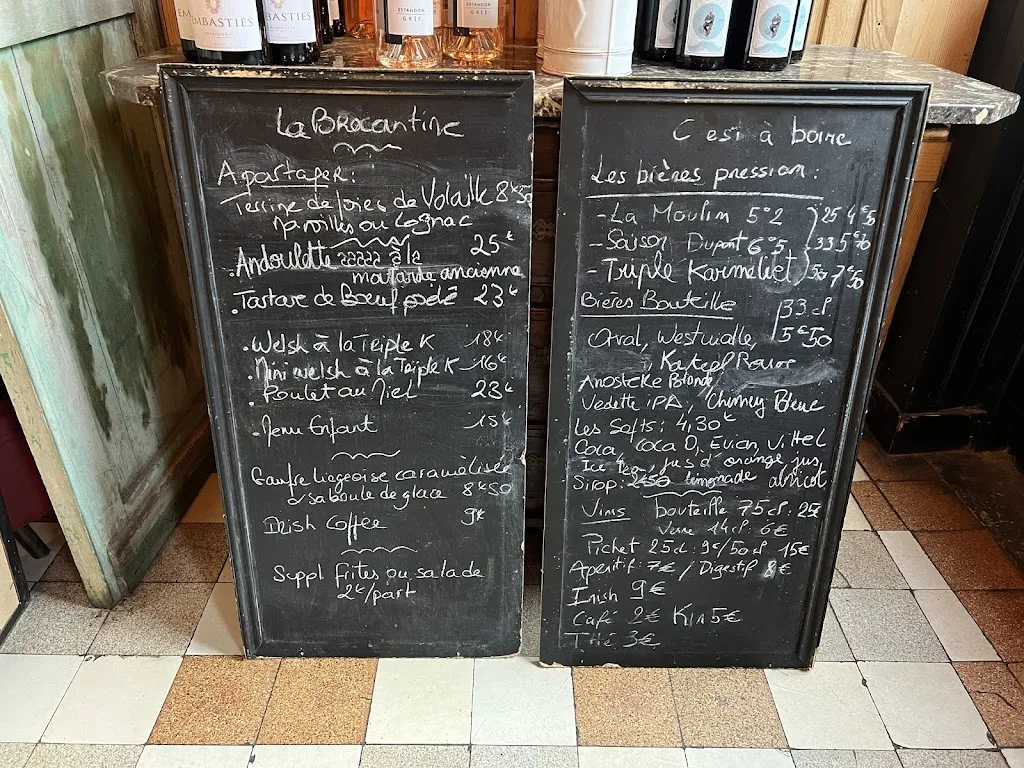 EMBASTIES
EMBASTIES
BETANDON
GRÈS
GRÈS
La Brocantine
A partager:
Terrine de foies de Volaille 8€50
Maroilles ou Cognac
. Andouillette AAAAA à la 25€
moutarde ancienne
. Tartare de Boeuf 23€
. Welsh à la Triple K 18€
. Mini welsh à la Triple K 16€
. Poulet au Miel 23€
. Menu Enfant 15€
Gaufre liégeoise caramélisée
& sa boule de glace 8€50
Irish Coffee 9€
Suppl frites ou salade
2€/part
C est à boire
Les bières pression :
- La Moulin 5°2 25 4€50
- Saison Dupont 6°5 33 5€70
- Triple Karmeliet 50 7€50
Bières Bouteille 33 cl
Orval, Westmalle, 5€50
Kasteel Rouge
Anosteke Blonde,
Vedette iPA, Chimay Bleue
Les Softs : 4,30€
Coca, coca 0, Evian, Vittel
Ice Tea, jus d'orange, jus
Sirop: 2€50 limonade abricot
Vins bouteille 75 cl : 25€
Verre 14cl: 6€
Pichet 25cl: 9€/50cl 15€
Apéritif: 7€ / Digestif 8€
Irish 9€
Café 2€ Kir 5€
THé 3€